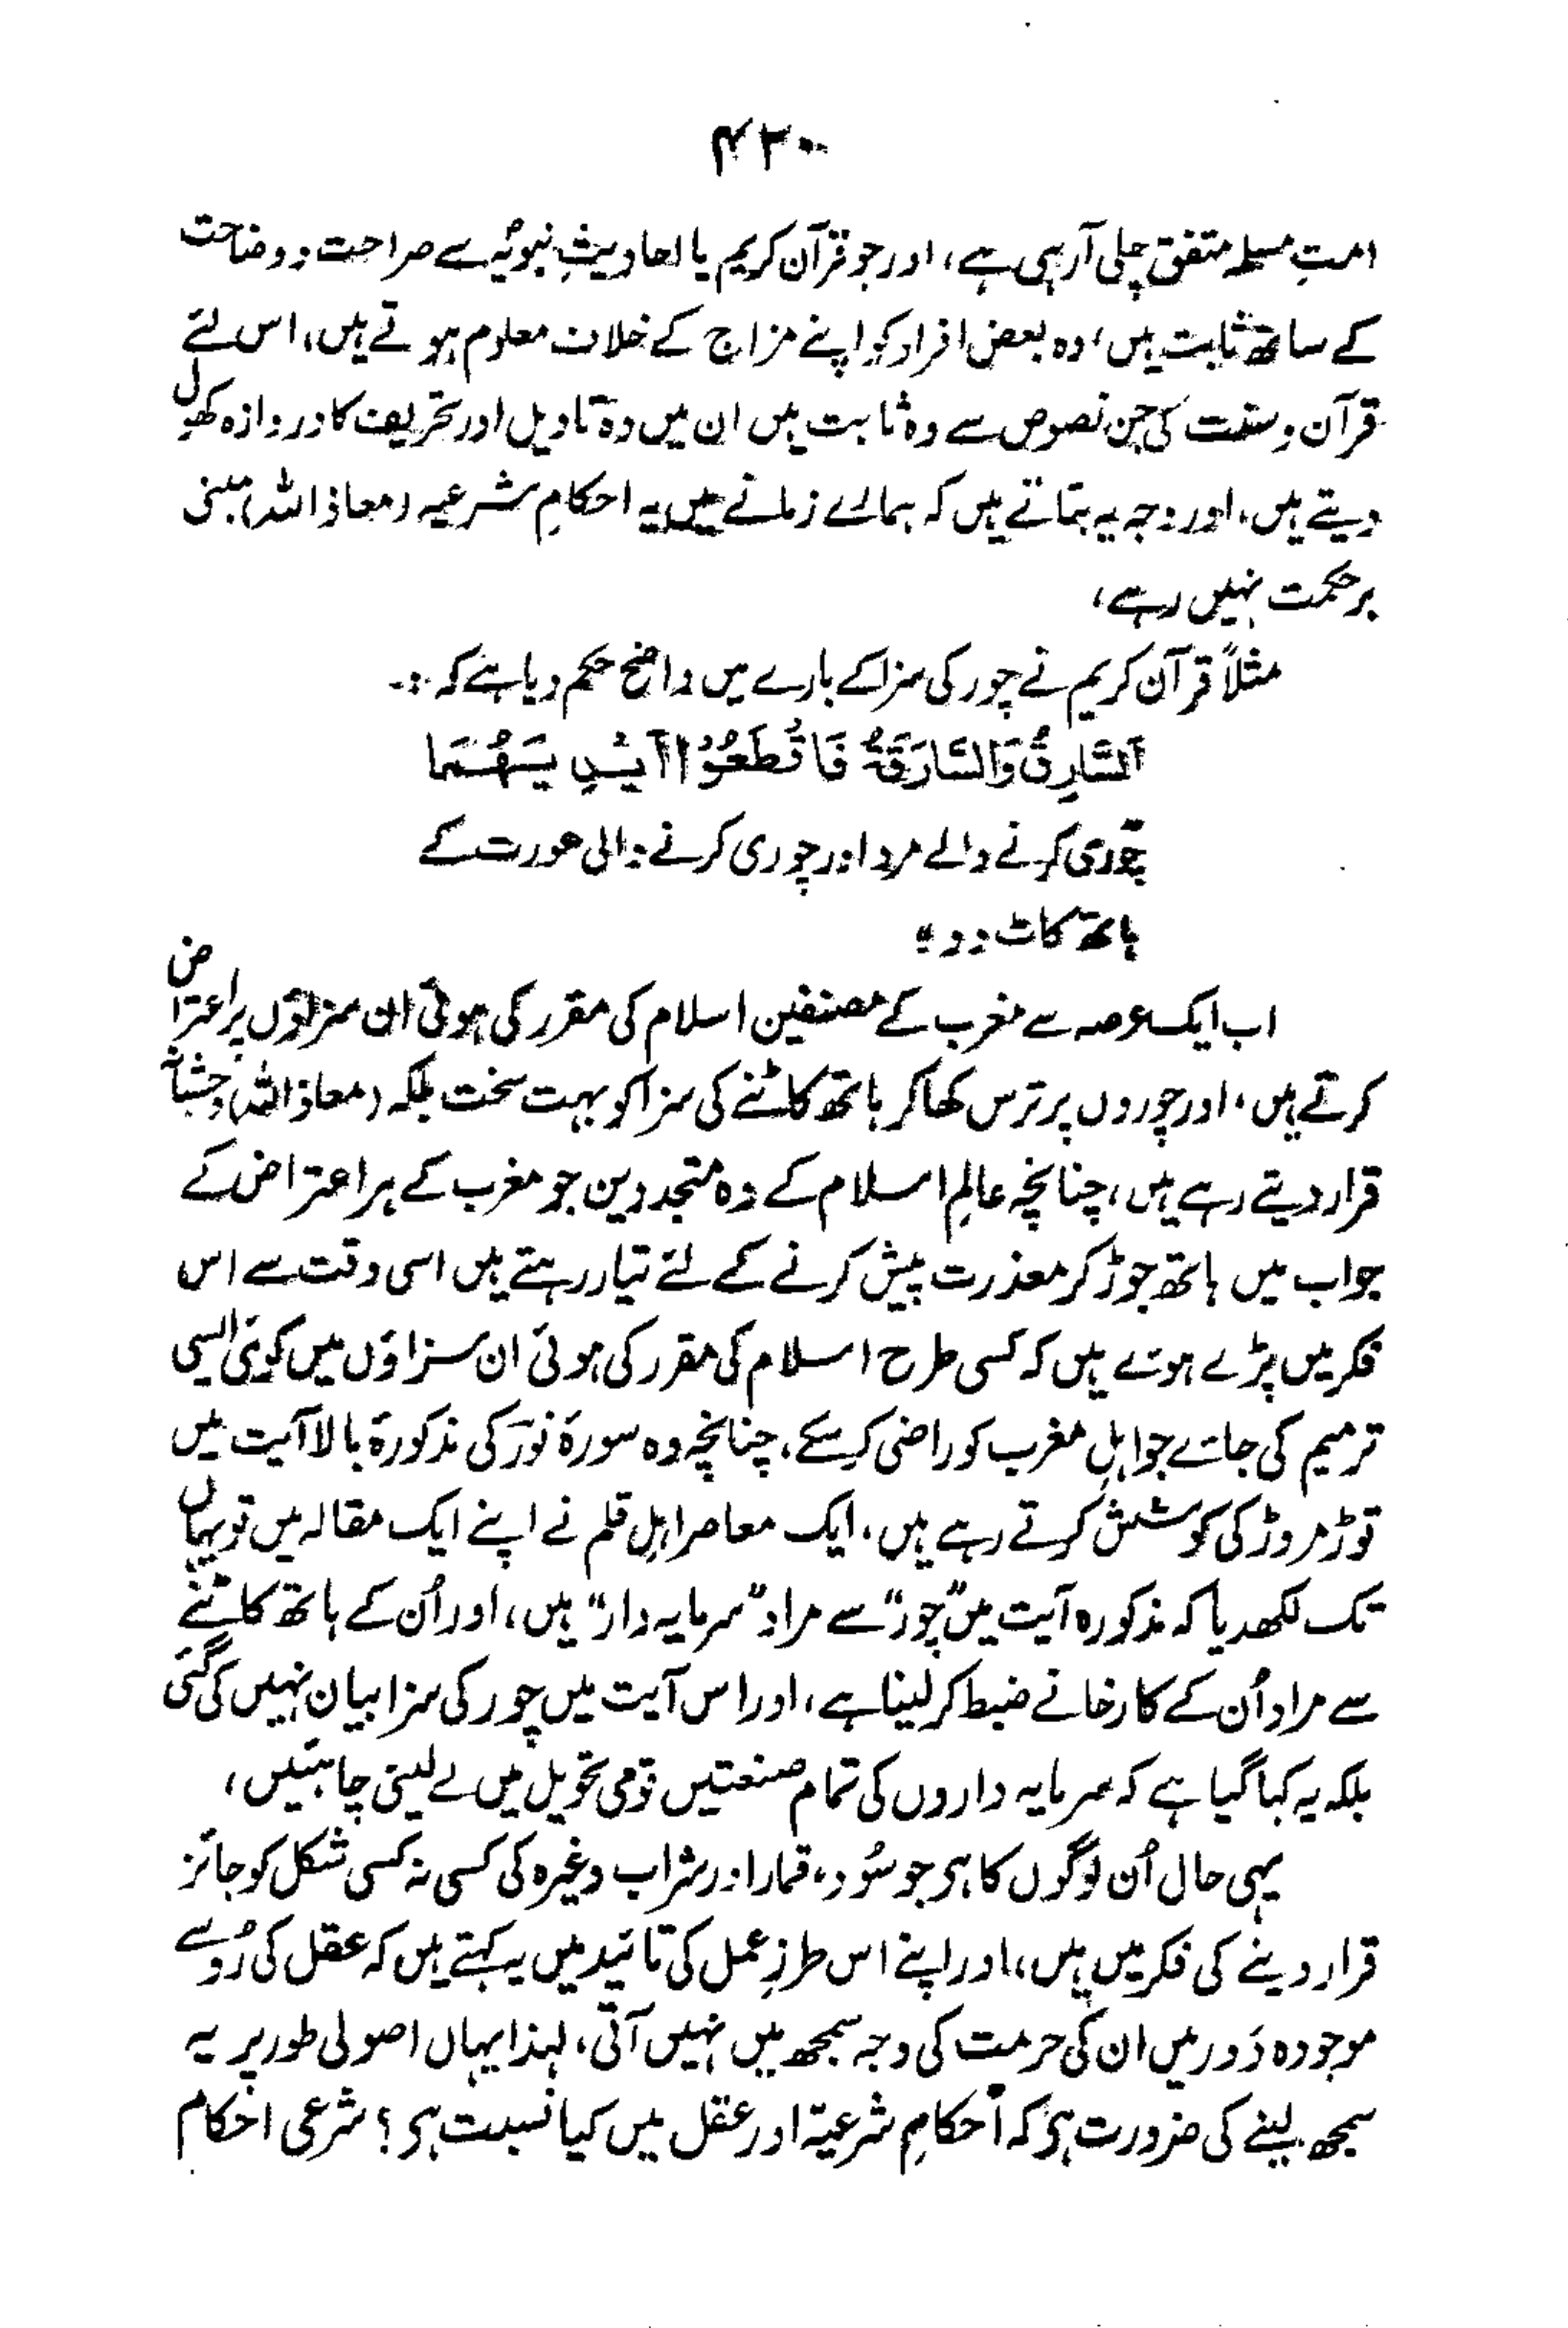 ۴۲۰
امتِ مسلمہ متفق چلی آرہی ہے، اور جو قرآن کریم یا احادیثِ نبویہؐ سے صراحت و وضاحت
کے ساتھ ثابت ہیں، وہ بعض افراد کو اپنے مزاج کے خلاف معلوم ہوتے ہیں، اس لئے
قرآن و سنت کی جن نصوص سے وہ ثابت ہیں ان میں وہ تاویل اور تحریف کا دروازہ کھول
دیتے ہیں، اور وجہ یہ بتاتے ہیں کہ ہمارے زمانے میں یہ احکامِ شرعیہ (معاذ اللہ) مبنی
برحکمت نہیں رہے،
مثلاً قرآن کریم نے چور کی سزا کے بارے میں واضح حکم دیا ہے کہ :۔
اَلسَّارِقُ وَالسَّارِقَةُ فَاقْطَعُوْا اَيْدِيَهُمَا
چوری کرنے والے مرد اور چوری کرنے والی عورت کے
ہاتھ کاٹ دو"
اب ایک عرصہ سے مغرب کے مصنفین اسلام کی مقرر کی ہوئی ان سزاؤں پر اعتراض
کرتے ہیں، اور چوروں پر ترس کھا کر ہاتھ کاٹنے کی سزا کو بہت سخت بلکہ (معاذ اللہ) وحشیانہ
قرار دیتے رہے ہیں، چنانچہ عالمِ اسلام کے وہ متجددین جو مغرب کے ہر اعتراض کے
جواب میں ہاتھ جوڑ کر معذرت پیش کرنے کے لئے تیار رہتے ہیں اسی وقت سے اس
فکر میں پڑے ہوئے ہیں کہ کسی طرح اسلام کی مقرر کی ہوئی ان سزاؤں میں کوئی ایسی
ترمیم کی جائے جو اہلِ مغرب کو راضی کر سکے، چنانچہ وہ سورۂ نور کی مذکورۂ بالا آیت میں
توڑ مروڑ کی کوشش کرتے رہے ہیں، ایک معاصر اہلِ قلم نے اپنے ایک مقالہ میں تو یہاں
تک لکھدیا کہ مذکورہ آیت میں "چور" سے مراد "سرمایہ دار" ہیں، اور اُن کے ہاتھ کاٹنے
سے مراد اُن کے کارخانے ضبط کر لینا ہے، اور اس آیت میں چور کی سزا بیان نہیں کی گئی
بلکہ یہ کہا گیا ہے کہ سرمایہ داروں کی تمام صنعتیں قومی تحویل میں لے لینی چاہئیں،
یہی حال اُن لوگوں کا ہی جو سُود، قمار اور شراب وغیرہ کی کسی نہ کسی شکل کو جائز
قرار دینے کی فکر میں ہیں، اور اپنے اس طرزِ عمل کی تائید میں یہ کہتے ہیں کہ عقل کی رُو سے
موجودہ دَور میں ان کی حرمت کی وجہ سمجھ میں نہیں آتی، لہٰذا یہاں اصولی طور پر یہ
سمجھ لینے کی ضرورت ہی کہ احکامِ شرعیہ اور عقل میں کیا نسبت ہی؟ شرعی احکام